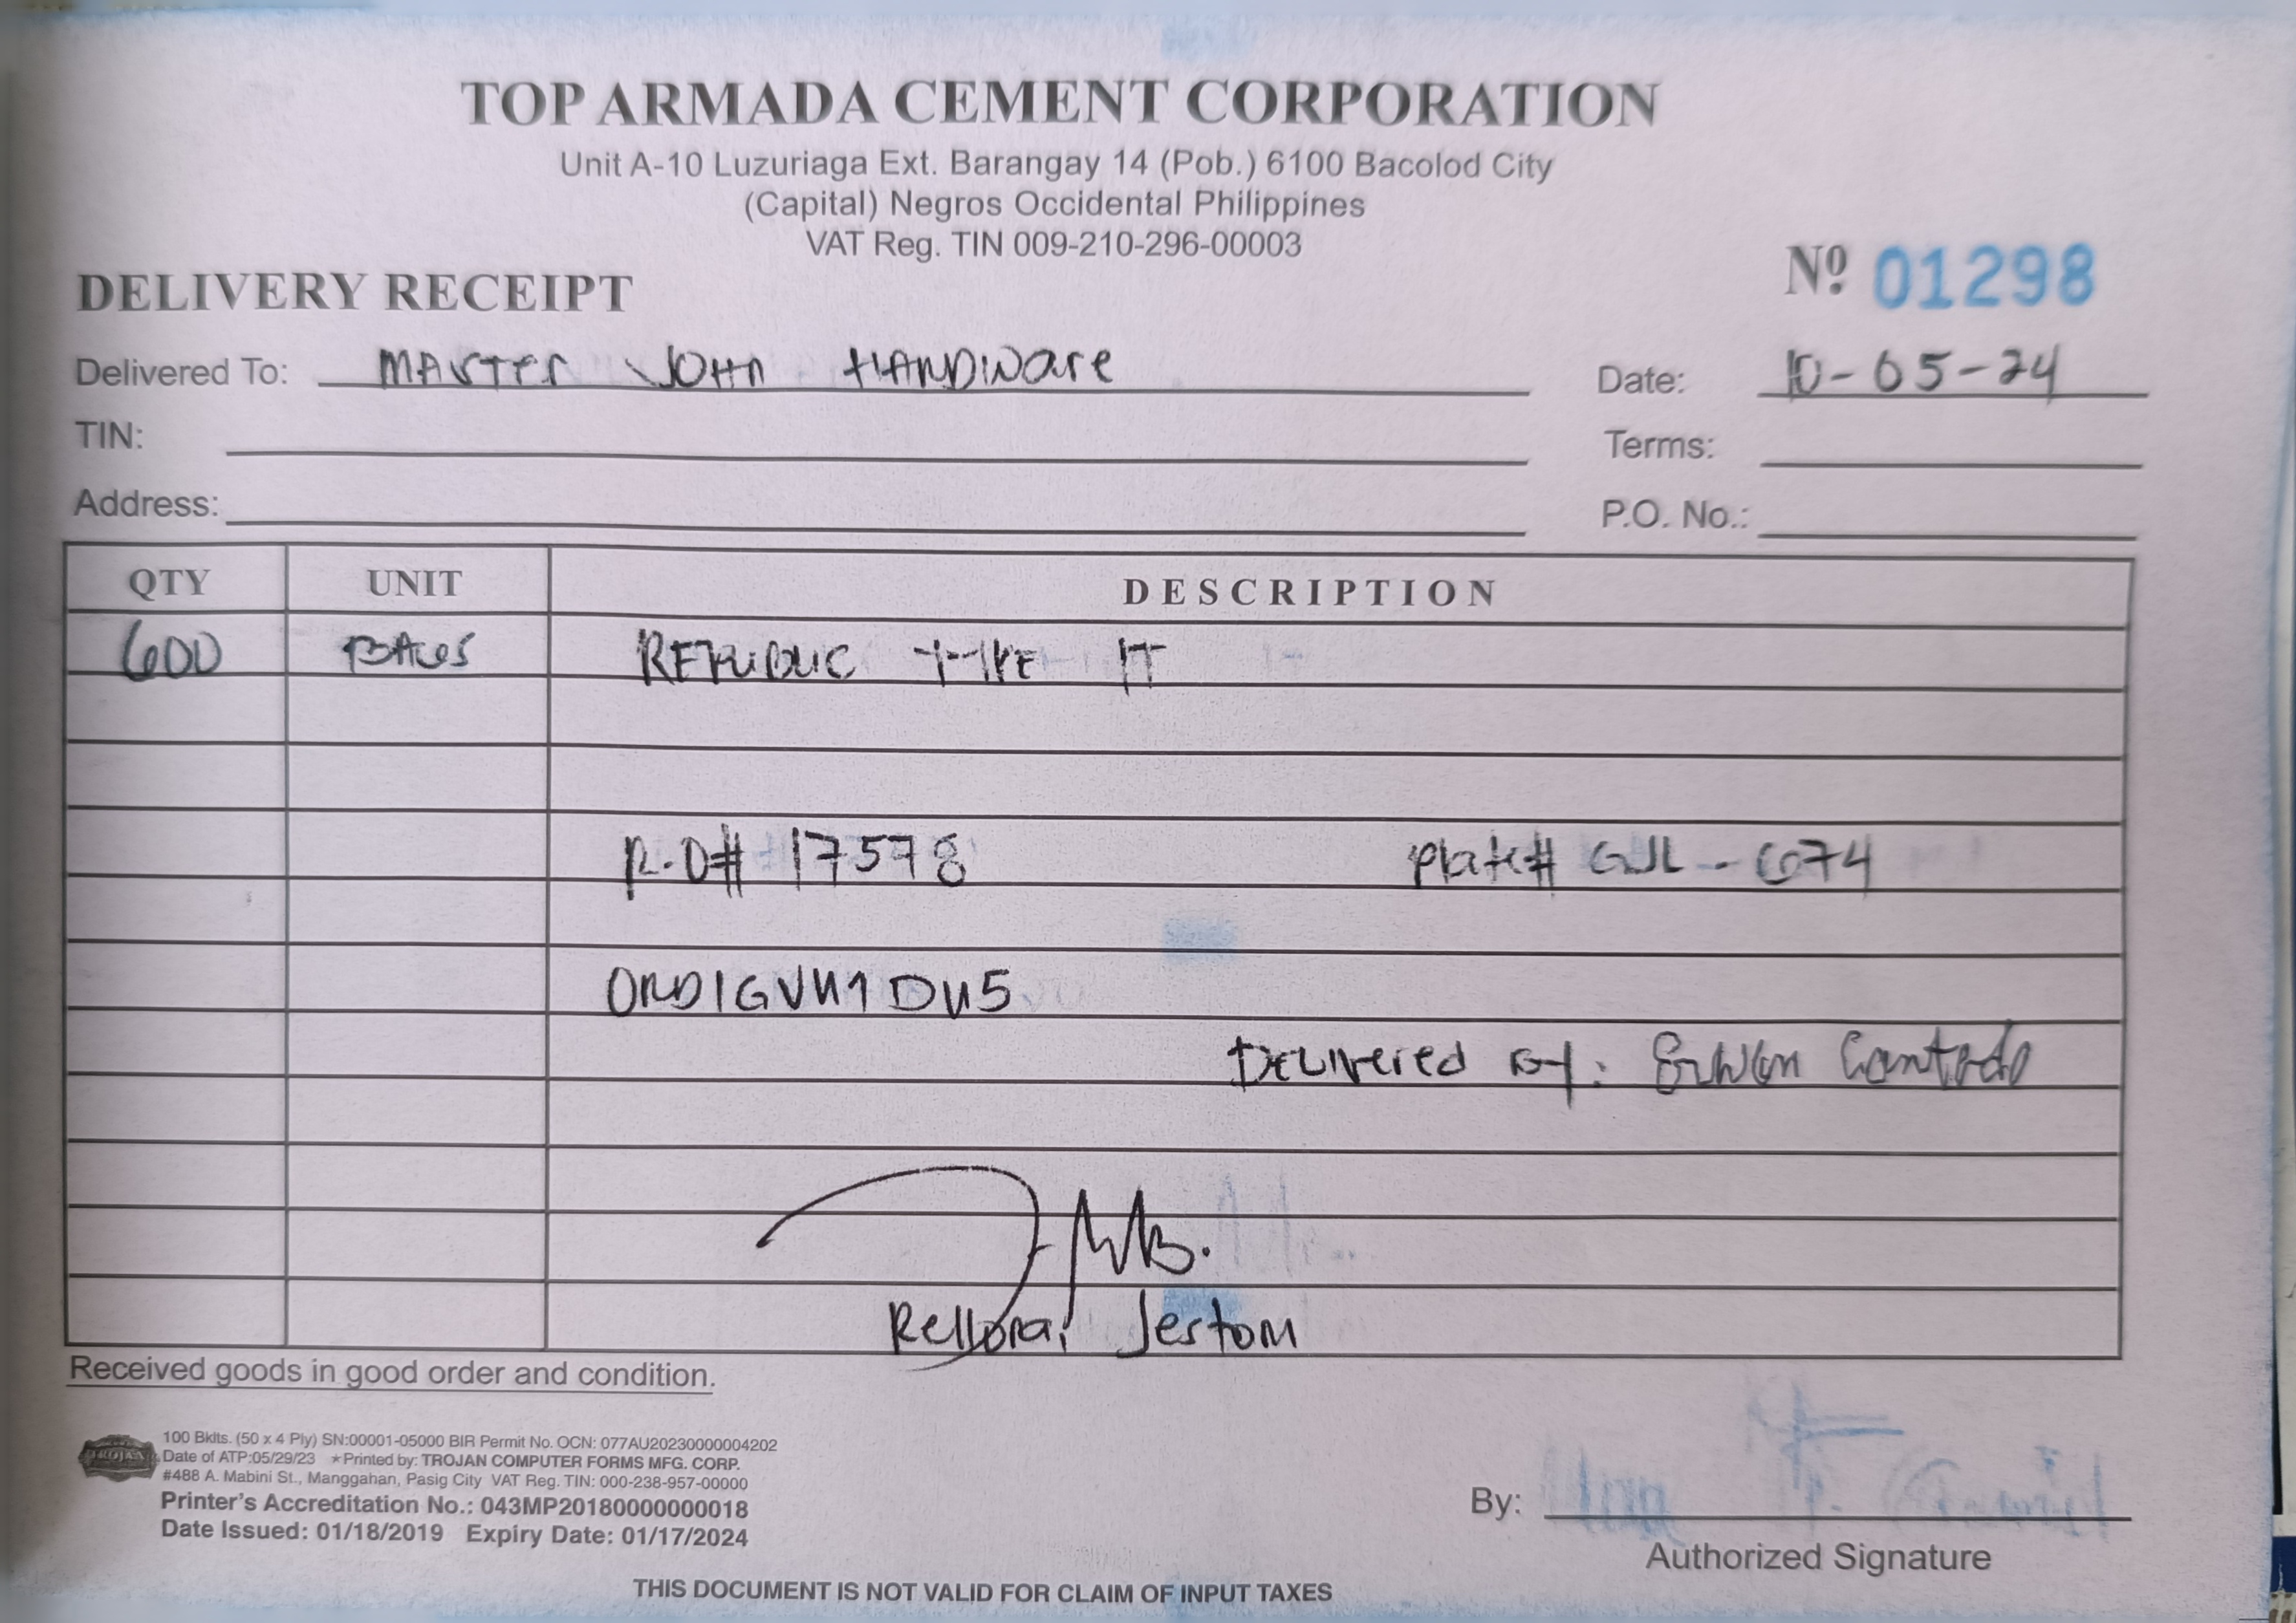 TOP ARMADA CEMENT CORPORATION
Unit A-10 Luzuriaga Ext. Barangay 14 (Pob.) 6100 Bacolod City
(Capital) Negros Occidental Philippines
VAT Reg. TIN 009-210-296-00003
DELIVERY RECEIPT
Nº 01298
Delivered To: MASTER JOHN HARDWare
Date: 10-05-24
TIN:
Terms:
Address:
P.O. No.:
QTY UNIT DESCRIPTION
600 BAGS REPUBLIC TYPE IT
R.O# 17578 Plate#
ORD1GVU1DU5
DELIVered BY:
Jestom
Received goods in good order and condition.
TROJAN
100 Bklts. (50 x 4 Ply) SN:00001-05000 BIR Permit No. OCN: 077AU20230000004202
Date of ATP:05/29/23 ★Printed by: TROJAN COMPUTER FORMS MFG. CORP.
#488 A. Mabini St., Manggahan, Pasig City VAT Reg. TIN: 000-238-957-00000
Printer's Accreditation No.: 043MP20180000000018
Date Issued: 01/18/2019 Expiry Date: 01/17/2024
By:
Authorized Signature
THIS DOCUMENT IS NOT VALID FOR CLAIM OF INPUT TAXES